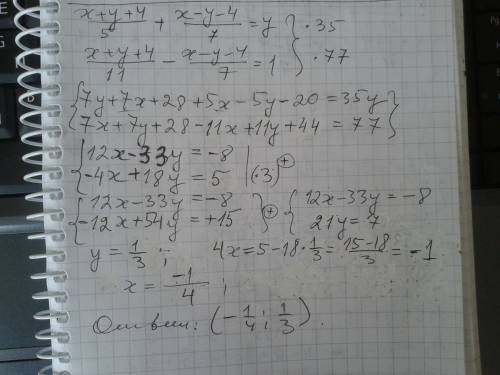 (x+y+4)/5 + (x-y-4)/7 = y } ·35
(x+y+4)/11 - (x-y-4)/7 = 1 } ·77
{7y+7x+28+5x-5y-20=35y}
{7x+7y+28-11x+11y+44=77}
{12x-33y=-8
{-4x+18y=5 |(·3) ⊕
{12x-33y=-8 } ⊕ {12x-33y=-8
{-12x+54y=+15 } {21y=7
y=1/3; 4x=5-18·1/3=(15-18)/3=-1
x=-1/4;
Ответ: (-1/4; 1/3).